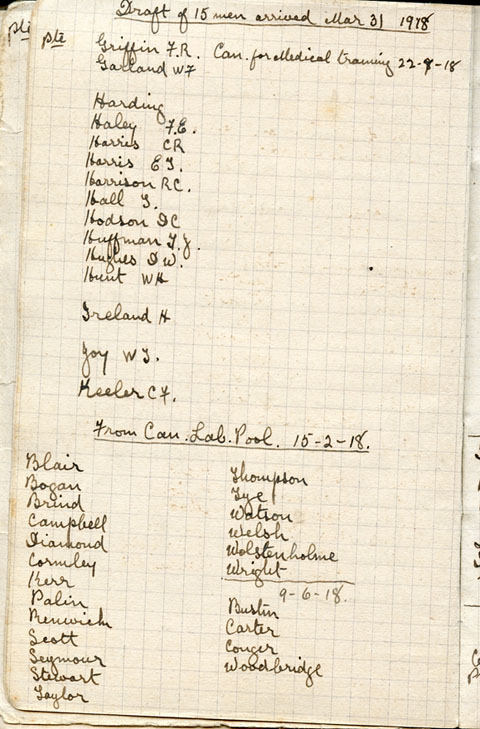 Draft of 15 men arrived Mar 31 1918
Pte Griffin F.R. Can. for Medical training 22-9-18
Garland W F
Harding
Haley F.E.
Harries CR
Harris E J.
Harrison R C.
Hall J.
Hodson D C
Huffman J. J.
Hughes D W.
Hunt W H
Ireland H
Joy W J.
Keeler C F.
From Can. Lab. Pool. 15-2-18.
Blair
Bogan
Brind
Campbell
Diamond
Cormley
Kerr
Palin
Renwick
Scott
Seymour
Stewart
Taylor
Thompson
Tye
Watson
Welsh
Wolstenholme
Wright
9-6-18.
Bustin
Carter
Conger
Woodbridge